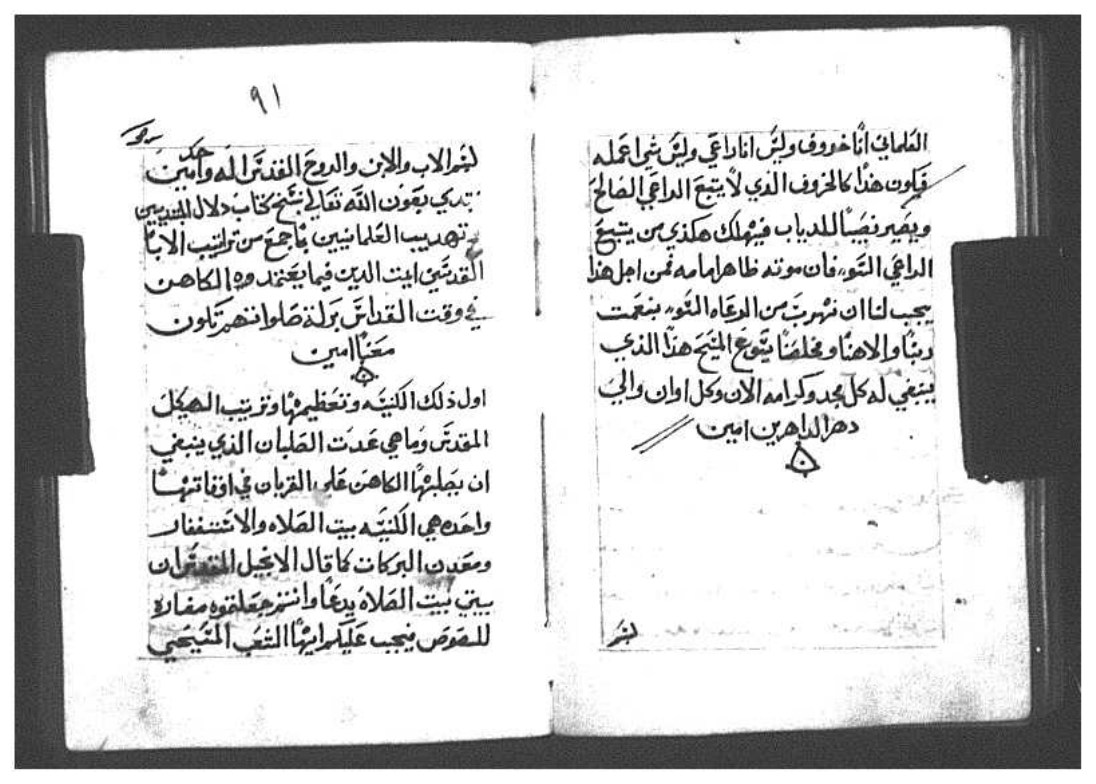 العلماني انا خروف وليس انا راعي وليس شي اعمله
فيكون هذا كالخروف الذي لا يتبع الراعي الصالح
ويصير نصيباً للدياب فيهلك هكذي من يتبع
الراعي السو فان موته ظاهر امامه فمن اجل هذا
يجب لنا ان نهرب من الرعاه السو بنعمت
ربنا والاهنا ومخلصنا يسوع المسيح هذا الذي
ينبغي له كل مجد وكرامه الان وكل اوان والي
دهر الداهرين امين
بسم
٩١
بسم الاب والابن والروح القدس اله واحد امين
نبتدي بعون الله تعالي بنسخ كتاب دلال المبتديين
وتهديب العلمانيين مما جمع من تراتيب الابا
القديسين في الدين فيما يعتمدوه الكاهن
في وقت القداس بركة صلواتهم تكون
معنا امين
اول ذلك الكنيسه وتعظيمها وترتيب الهيكل
المقدس وما هي عدت الصلبان الذي ينبغي
ان يصلبها الكاهن علي القربان في اوقاتها
واحده هي الكنيسه بيت الصلاه والاستغفار
ومعدن البركات كما قال الانجيل المقدس ان
بيتي بيت الصلاة يدعا وانتم جعلتموه مغارة
للصوص فيجب عليكم ايها الشعب المسيحي